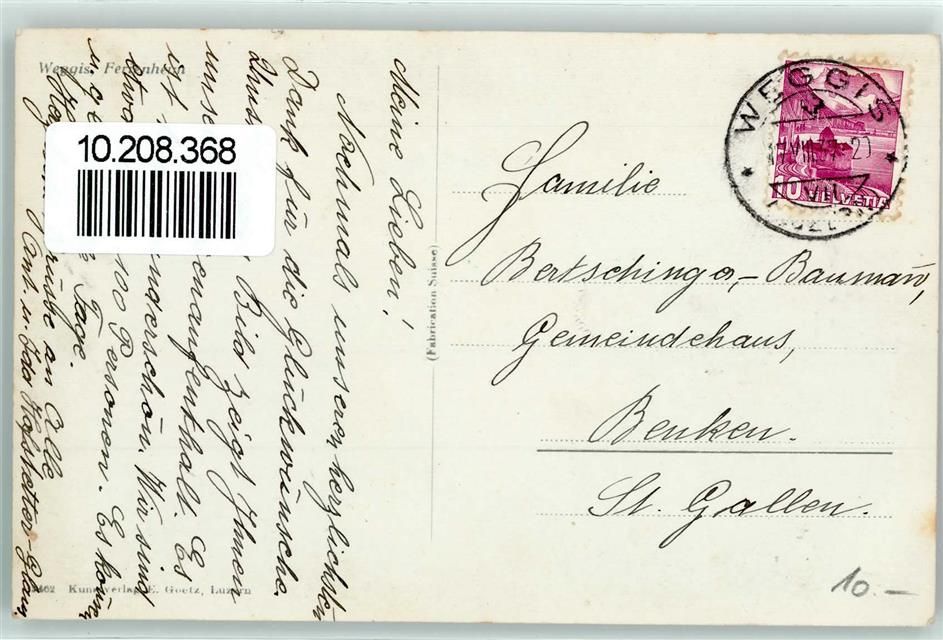 Weggis, Ferienheim
10.208.368
Meine Lieben!
Nochmals unseren herzlichsten
Dank für die Glückwünsche.
Bild zeigt Ihnen
unse enaufenthalt. Es
ist underschön. Wir sind
etwa 100 Personen. Es
u. g Tage.
Grüsse an Alle
Hofstetter-
(Fabrication Suisse)
WEGGIS
10 HELVETIA
Familie
Bertschinger-Baumann,
Gemeindehaus,
Benken.
St. Gallen.
462 Kunstverlag E. Goetz, Luzern
10.-